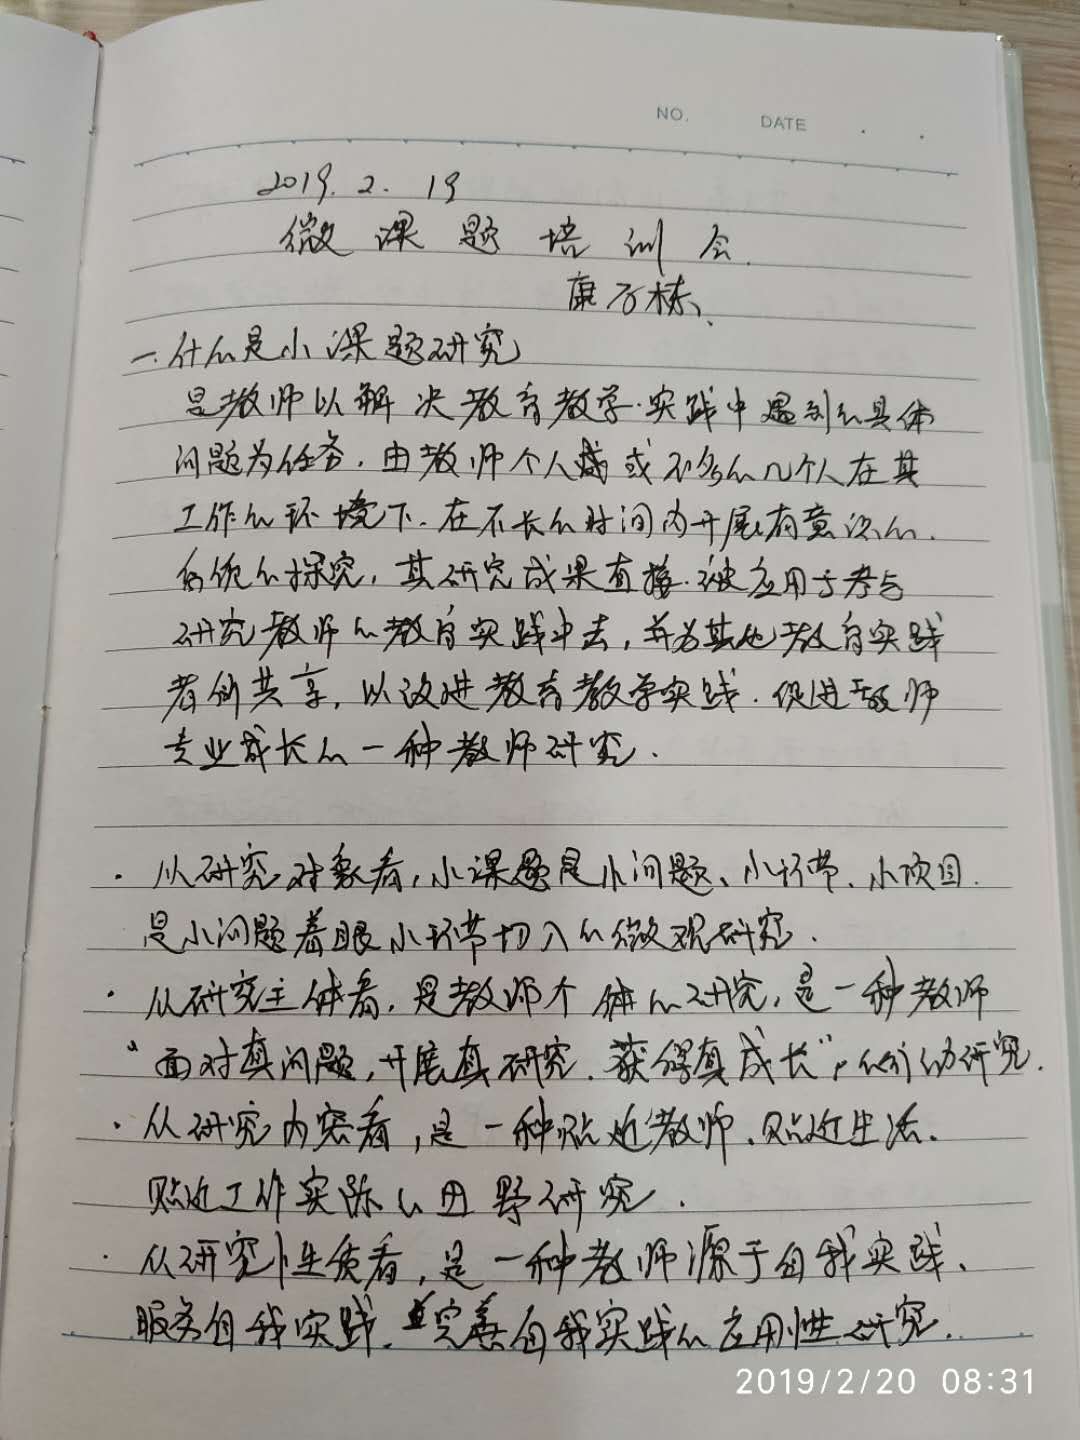 NO. DATE
2019.2.19
微课题培训会.
康万栋、
一.什么是小课题研究
是教师以解决教育教学.实践中遇到的具体
问题为任务.由教师个人或不多的几个人在其
工作的环境下.在不长的时间内开展有意识的.
系统的探究,其研究成果直接.被应用于参与
研究教师的教育实践中去,并为其他教育实践
者所共享,以改进教育教学实践.促进教师
专业成长的一种教师研究.
·从研究对象看,小课题是小问题、小环节、小项目.
是小问题着眼小环节切入的微观研究.
·从研究主体看,是教师个体的研究,是一种教师
“面对真问题,开展真研究.获得真成长”的研究.
·从研究内容看,是一种贴近教师、贴近生活、
贴近工作实际的田野研究.
·从研究性质看,是一种教师源于自我实践、
服务自我实践.完善自我实践的应用性研究.
2019/2/20 08:31